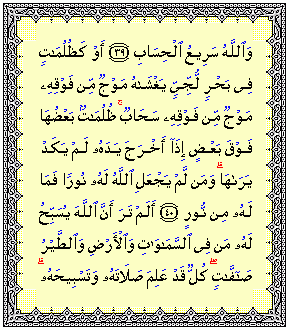 وَٱللَّهُ سَرِيعُ ٱلْحِسَابِ ﴿٣٩﴾ أَوْ كَظُلُمَٰتٍ
فِى بَحْرٍ لُّجِّىٍّ يَغْشَىٰهُ مَوْجٌ مِّن فَوْقِهِۦ
مَوْجٌ مِّن فَوْقِهِۦ سَحَابٌ ۚ ظُلُمَٰتٌۢ بَعْضُهَا
فَوْقَ بَعْضٍ إِذَآ أَخْرَجَ يَدَهُۥ لَمْ يَكَدْ
يَرَىٰهَا ۗ وَمَن لَّمْ يَجْعَلِ ٱللَّهُ لَهُۥ نُورًا فَمَا
لَهُۥ مِن نُّورٍ ﴿٤٠﴾ أَلَمْ تَرَ أَنَّ ٱللَّهَ يُسَبِّحُ
لَهُۥ مَن فِى ٱلسَّمَٰوَٰتِ وَٱلْأَرْضِ وَٱلطَّيْرُ
صَٰٓفَّٰتٍ ۖ كُلٌّ قَدْ عَلِمَ صَلَاتَهُۥ وَتَسْبِيحَهُۥ ۗ